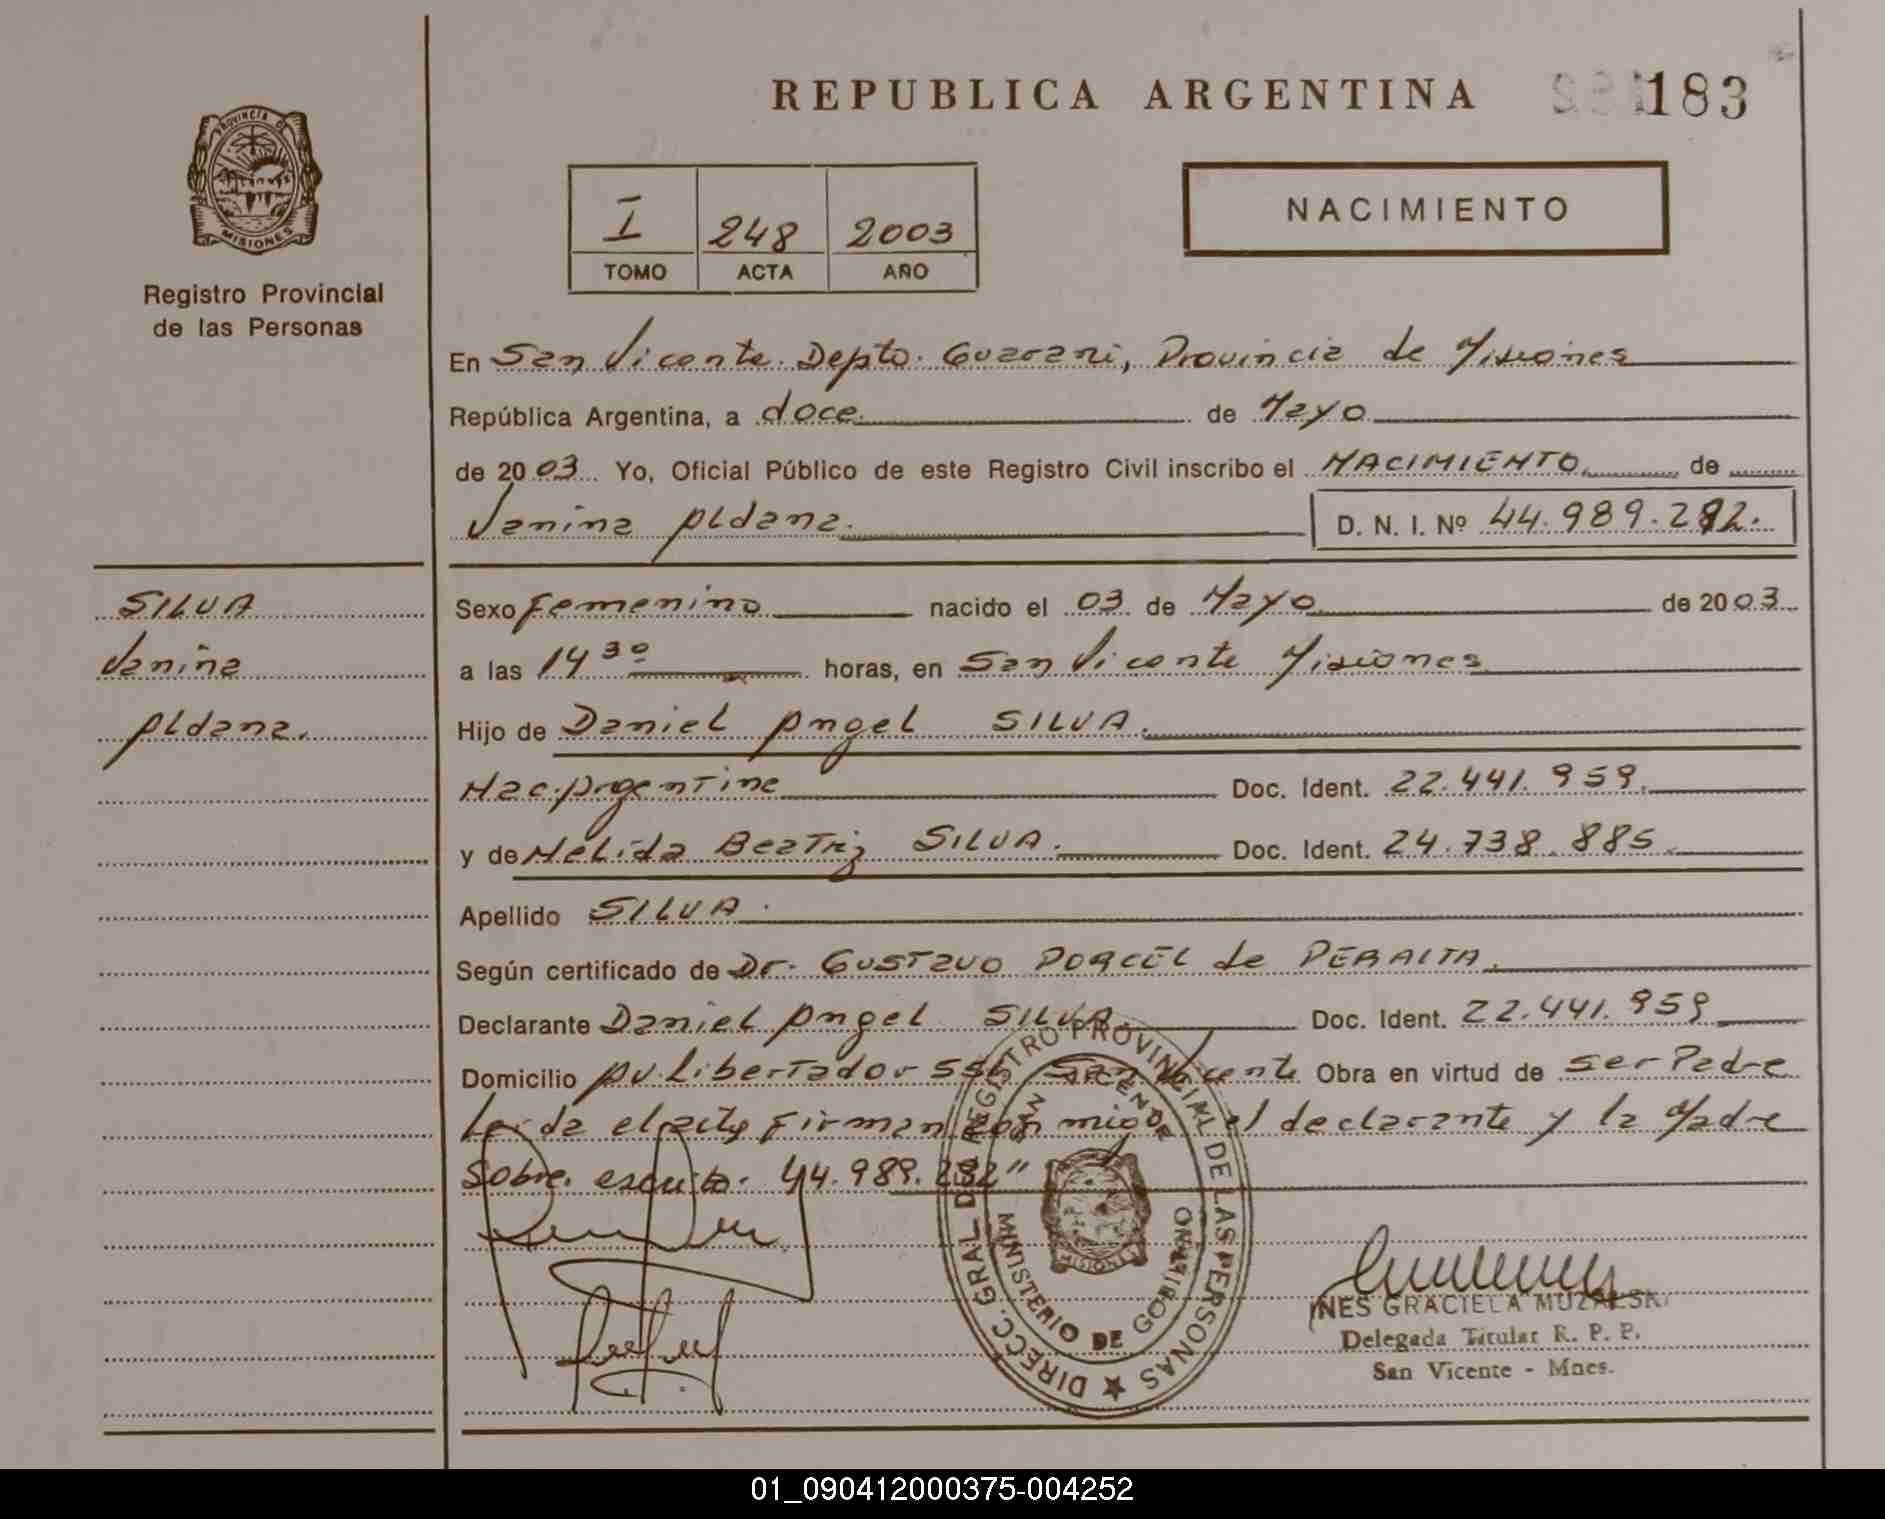 REPUBLICA ARGENTINA
183
PROVINCIA DE
MISIONES
Registro Provincial
de las Personas
I 248 2003
TOMO ACTA AÑO
NACIMIENTO
En San Vicente. Depto. Guarani, Provincia de Misiones
República Argentina, a doce de Mayo
de 2003 Yo, Oficial Público de este Registro Civil inscribo el NACIMIENTO de
Vanina Aldana. D. N. I. Nº 44.989.282.
SILVA
Vanina
Aldana.
Sexo Femenino nacido el 03 de Mayo de 2003
a las 14 30 horas, en San Vicente Misiones
Hijo de Daniel Angel SILVA.
Nac. Argentina Doc. Ident. 22.441.959.
y de Nelida Beatriz SILVA. Doc. Ident. 24.738.885.
Apellido SILVA.
Según certificado de Dr. GUSTAVO PORCEL de PERALTA.
Declarante Daniel Angel SILVA Doc. Ident. 22.441.959
Domicilio Av. Libertador San Vicente Obra en virtud de ser Padre
Leida el acta Firman con migo el declarante y la Madre
Sobre. escrito. 44.989.282"
DIRECC. GRAL DEL REGISTRO PROVINCIAL DE LAS PERSONAS
SAN VICENTE
MINISTERIO DE GOBIERNO
MISIONES
INES GRACIELA MUZALSKI
Delegada Titular R. P. P.
San Vicente - Mnes.
01_090412000375-004252